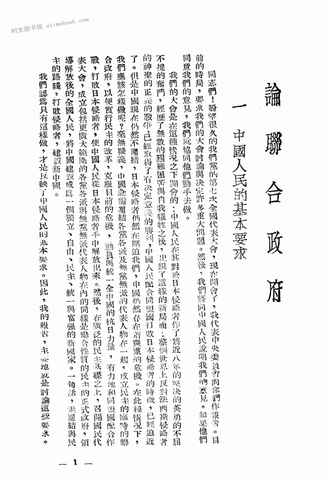 論聯合政府
一 中國人民的基本要求
同志們!盼望很久的我們黨的第七次全國代表大會,現在開會了。我代表中央委員會向你們作報告。目
前的時局,要求我們的大會討論與決定許多重大問題。然後,我們將同中國人民說明我們的意見。如果他們
同意我們的意見,我們就協同他們動手去做。
我們的大會是在這種情況之下開會的:中國人民在其對於日本侵略者作了將近八年的堅決的英勇的不屈
不撓的奮鬥,經歷了無數的艱難困苦與自我犧牲之後,出現了這樣的新局面:整個世界上反對法西斯侵略者
的神聖的正義的戰爭已經取得了有決定意義的勝利,中國人民配合同盟國打敗日本侵略者的時機,已經迫近
了。但是中國現在仍然不團結,日本侵略者仍然在壓迫我們,中國仍然存在着嚴重的危機。在此種情況下,
我們應該怎樣做呢?毫無疑義,中國急需團結各黨各派及無黨無派的代表人物在一起,成立民主的臨時的聯
合政府,以便實行民主的改革,克服目前的危機,動員與統一全中國的抗日力量,有力地和同盟國配合作
戰,打敗日本侵略者,使中國人民從日本侵略者手中解放出來。然後,在廣泛的民主基礎之上,召開國民代
表大會,成立包括更廣大範圍的各黨各派與無黨無派代表人物在內的同樣是聯合性質的民主的正式政府,領
導解放後的全國人民,將中國建設成為一個獨立、自由、民主、統一與富強的新國家。一句話,走團結與民
主的路綫,打敗侵略者,建設新中國。
我們認爲只有這樣做,才是反映了中國人民的基本要求。因此,我的報告,主要地就是討論這些要求。
— 1 —